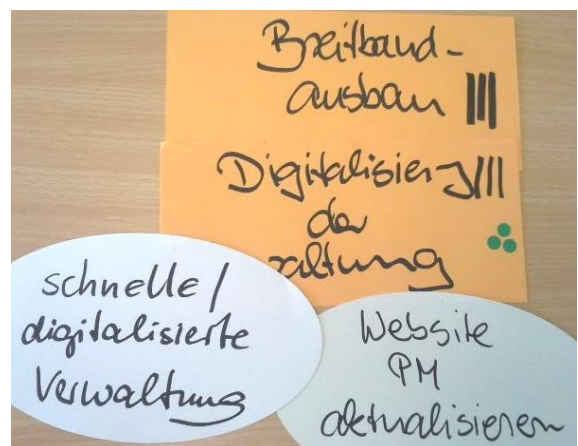 Breitband-
ausbau |||
Digitalisierg |||
der
altung
schnelle /
digitalisierte
Verwaltung
Website
PM
aktualisieren